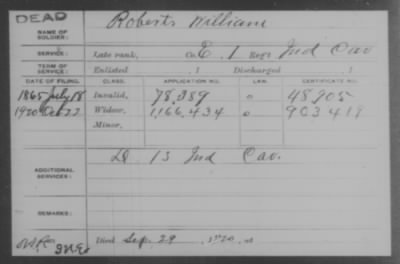 DEAD
NAME OF SOLDIER: Roberts William
SERVICE: Late rank, Co. E, 1 Reg't Ind Cav
TERM OF SERVICE: Enlisted , 1 Discharged , 1
DATE OF FILING. CLASS. APPLICATION NO. LAW. CERTIFICATE NO.
1865 July 18 Invalid, 78,389 o 48905
1920 Oct 22 Widow, 1,166,434 o 903419
Minor,
ADDITIONAL SERVICES: D 13 Ind Cav.
REMARKS:
Died Sep. 29, 1920, at